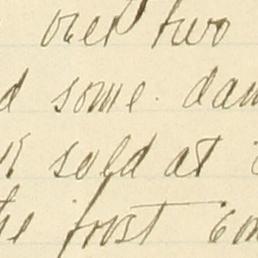 over two
some dam
sold at
the frost